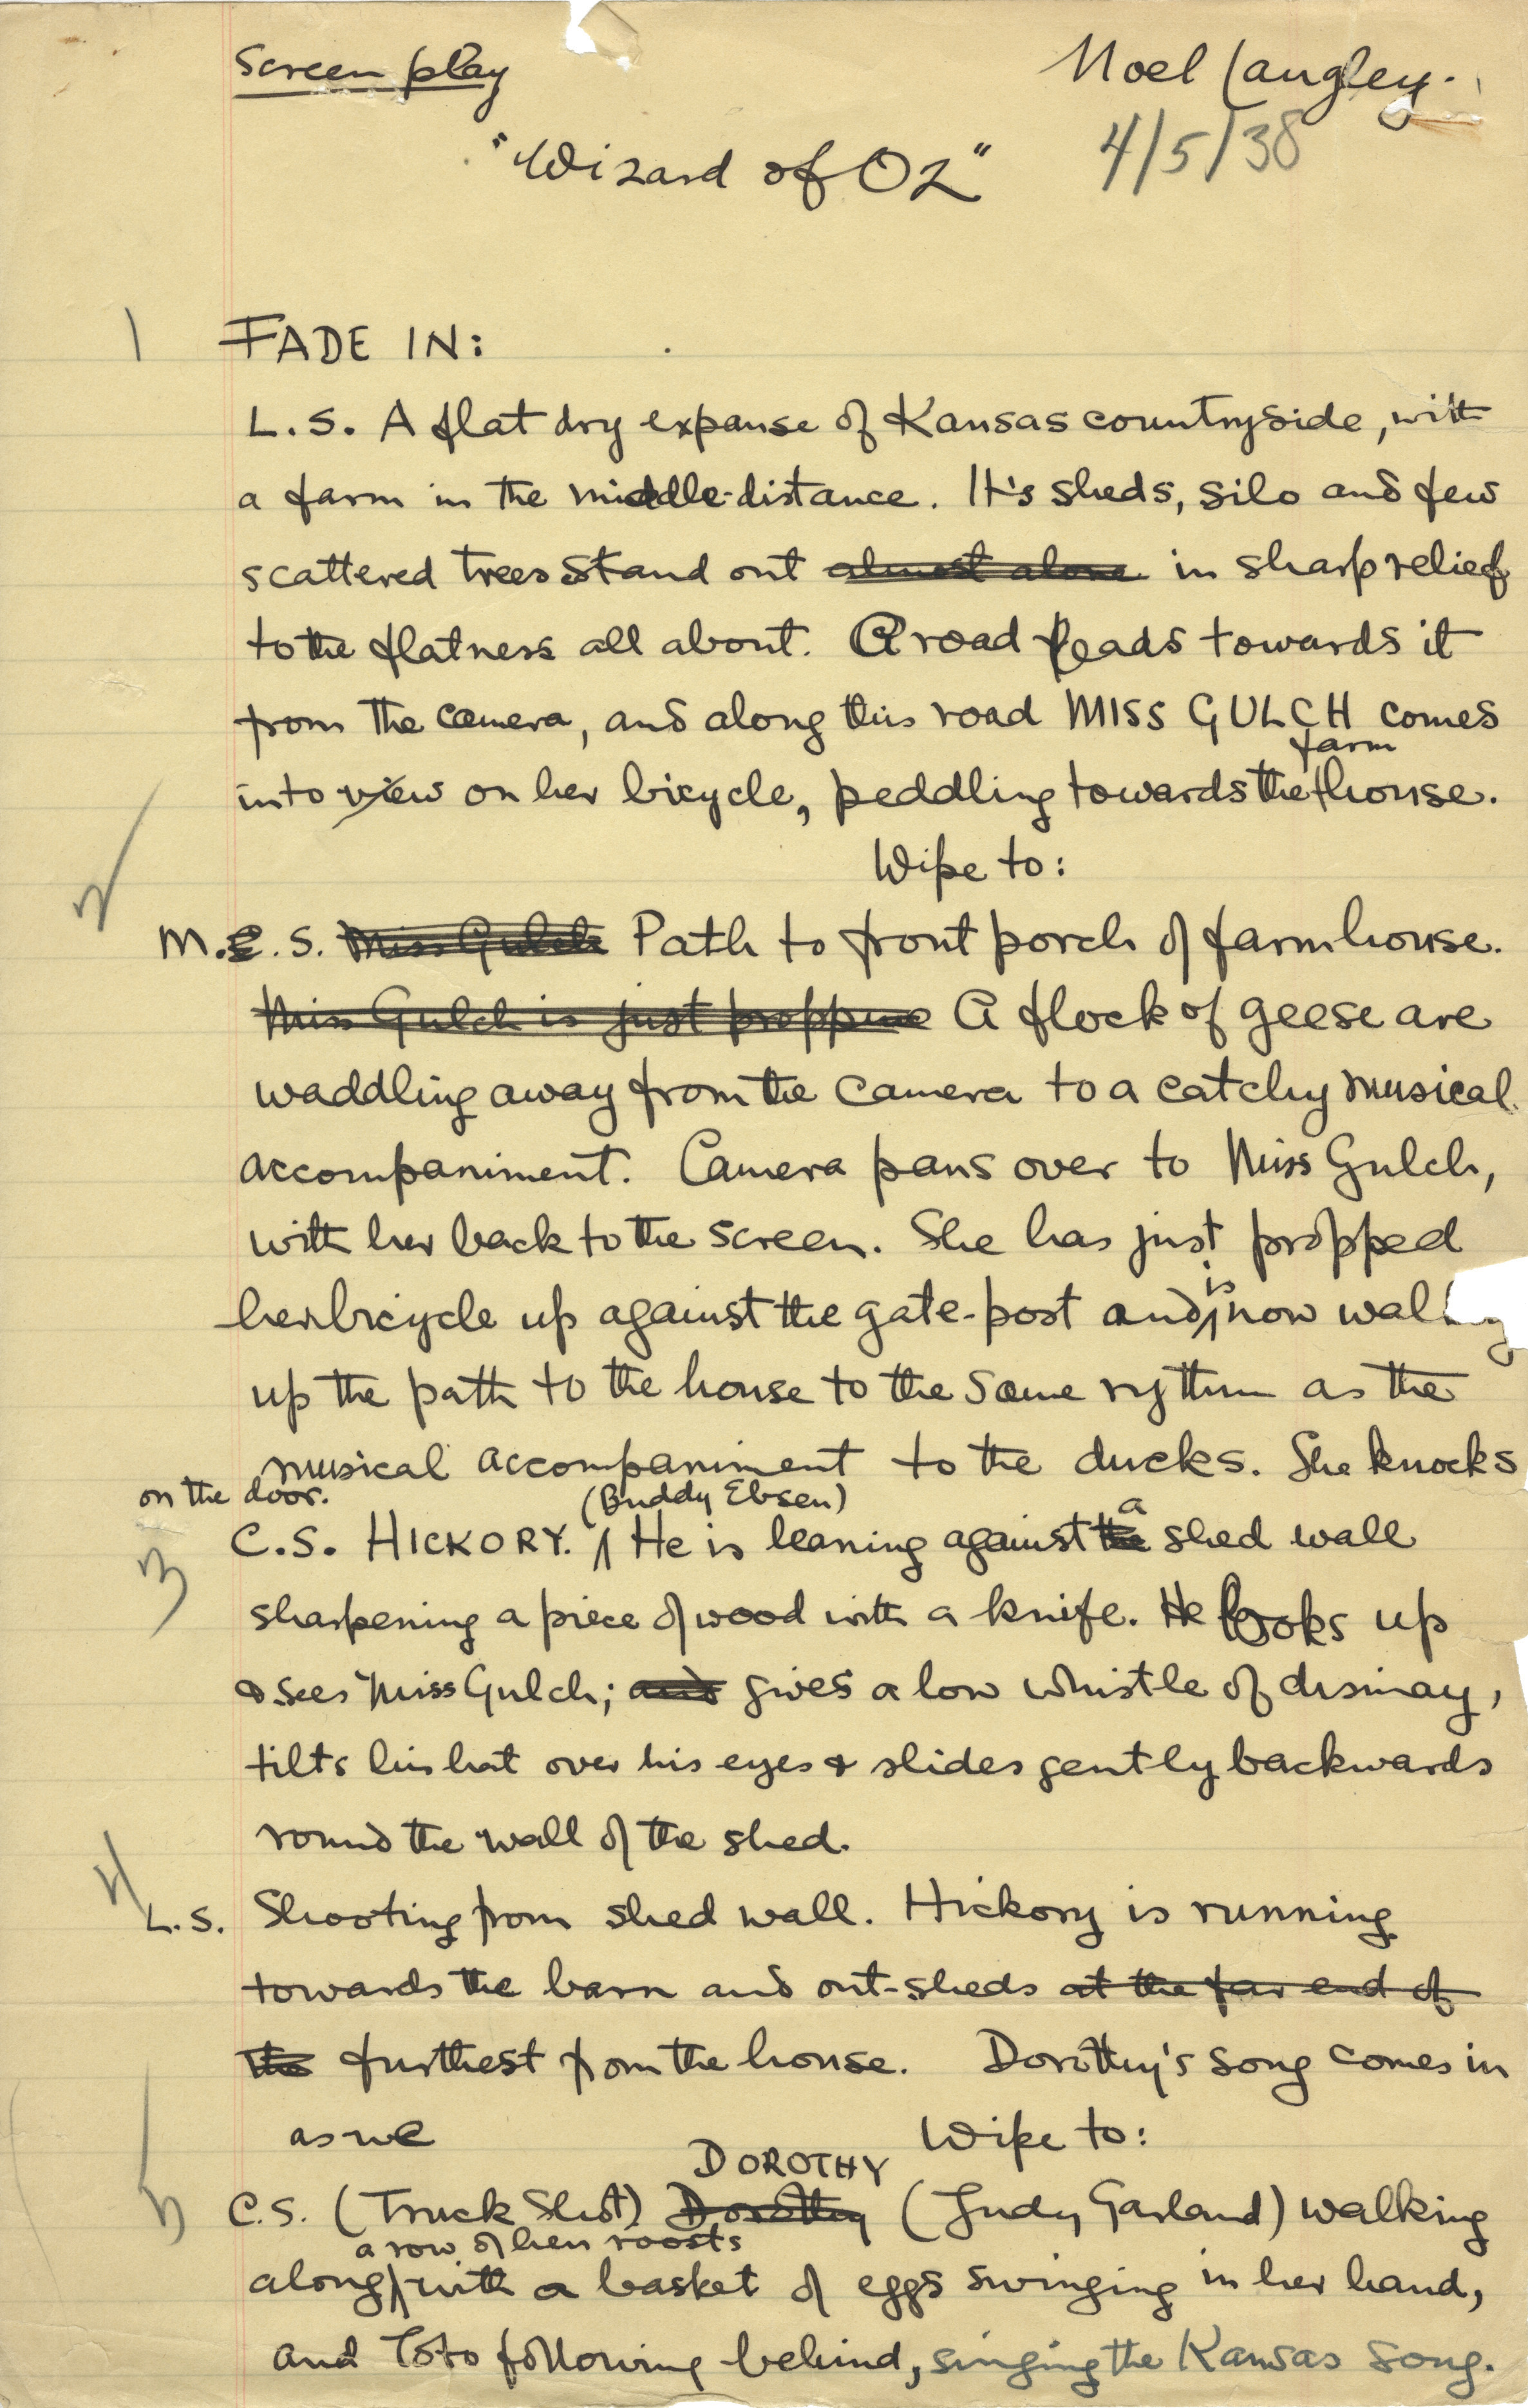 Screen play
Noel Langley.
"Wizard of Oz"
4/5/38
1 FADE IN:
L.S. A flat dry expanse of Kansas countryside, with
a farm in the middle-distance. It's sheds, silo and few
scattered trees stand out almost alone in sharp relief
to the flatness all about. A road leads towards it
from the camera, and along this road MISS GULCH comes
farm
into view on her bicycle, peddling towards the house.
Wipe to:
2
M.C.S. Miss Gulch Path to front porch of farmhouse.
Miss Gulch is just propping A flock of geese are
waddling away from the camera to a catchy musical
accompaniment. Camera pans over to Miss Gulch,
with her back to the screen. She has just propped
is
her bicycle up against the gate-post and now wal
up the path to the house to the same rythm as the
musical accompaniment to the ducks. She knocks
on the door.
(Buddy Ebsen) a
3 C.S. HICKORY. He is leaning against the shed wall
sharpening a piece of wood with a knife. He looks up
& sees Miss Gulch; and gives a low whistle of dismay,
tilts his hat over his eyes & slides gently backwards
round the wall of the shed.
4
L.S. Shooting from shed wall. Hickory is running
towards the barn and out-sheds at the far end of
the furthest from the house. Dorothy's song comes in
as we Wipe to:
DOROTHY
5 C.S. (Truck Shot) Dorothy (Judy Garland) walking
a row of hen roosts
along with a basket of eggs swinging in her hand,
and Toto following behind, singing the Kansas song.